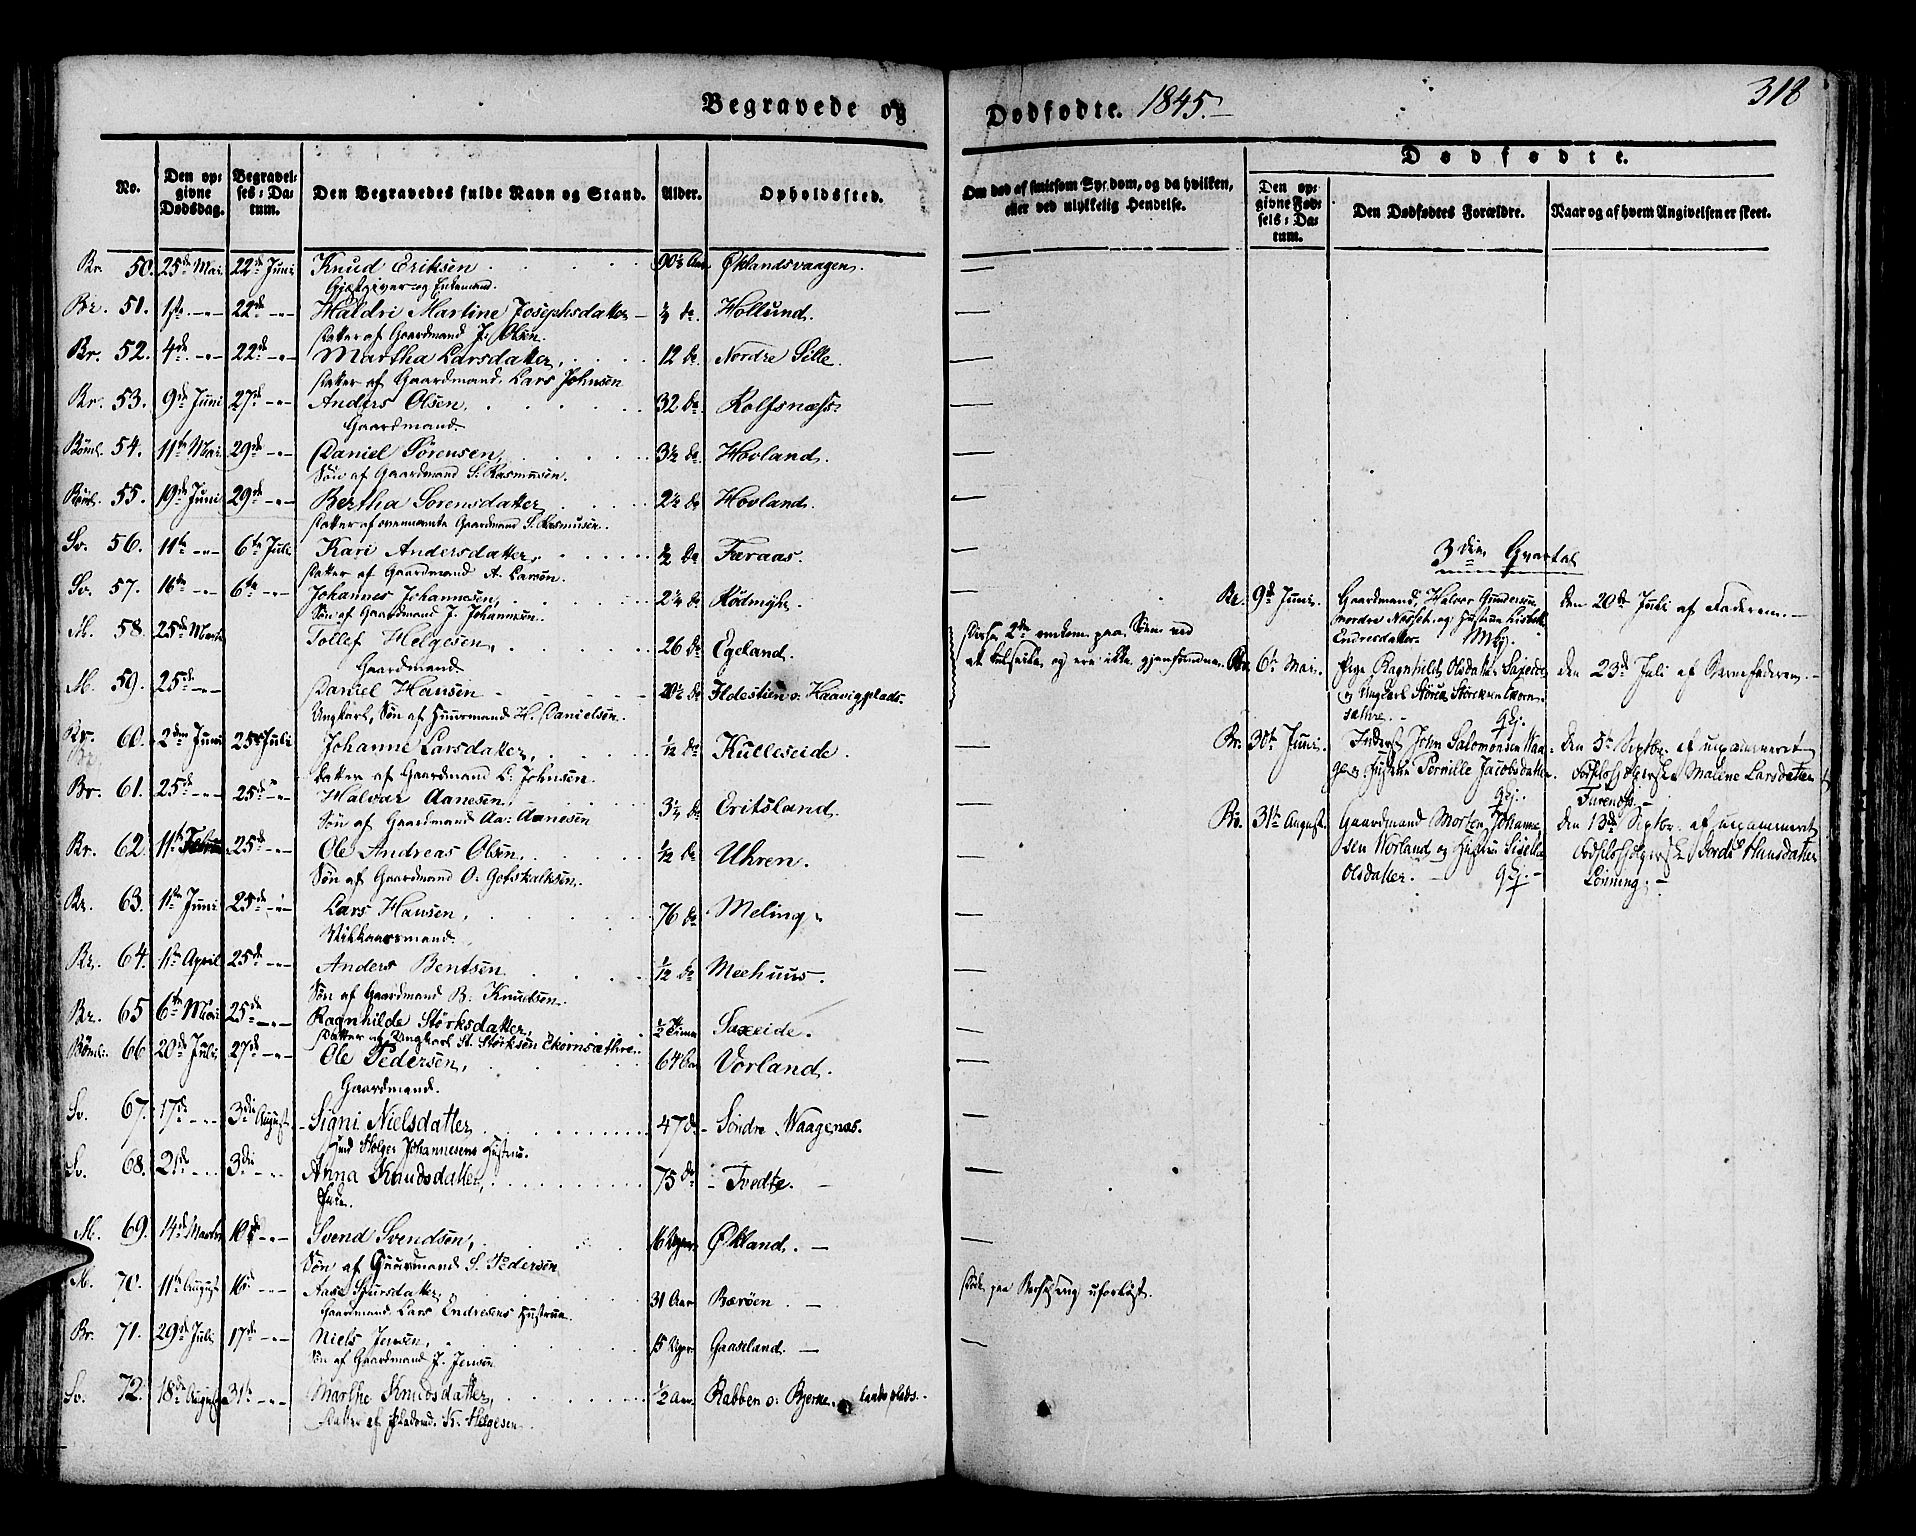 Begravede og Dødfødte. 1845.
318
No.
Den opgivne Dødsdag.
Begravelses-Datum.
Den Begravedes fulde Navn og Stand.
Alder.
Opholdssted.
Om død af smitsom Sygdom, og da hvilken, eller ved ulykkelig Hendelse.
Dødfødte.
Den opgivne Fødsels-Datum.
Den Dødfødtes Forældre.
Naar og af hvem Angivelsen er skeet.
Br. 50. 25de Mai. 22de Juni Knud Eriksen 90½ Aar Øklandsvaagen.
Gjæstgiver og Enkemand.
Br. 51. 1ste 22de Haldri Martine Josephsdatter do. Hollund.
Datter af Gaardmand J. Olsen.
Br. 52. 4de 22de Martha Larsdatter, 12 do Nordre Lille.
Datter af Gaardmand Lars Johnsen
Br. 53. 9de Juni 27de Anders Olsen, 32 do Rolfsnæss
Gaardmand.
Bömt. 54. 11te Mai. 29de Daniel Sørensen, 3½ do Hovland.
Søn af Gaardmand S. Rasmussen.
Bömt. 55. 19de Juni 29de Bertha Sorensdatter, 2½ do Hovland.
Datter af ovennævnte Gaardmand S. Rasmusen.
Sv. 56. 11te 6te Juli Kari Andersdatter, ½ do Færaas.
Datter af Gaardmand A. Larsen.
Sv. 57. 16de 6te Johannes Johannesen, 2¼ do
Søn af Gaardmand J. Johannesen.
M. 58. 25de Marts Tollef Helgesen, 26 do Egeland.
Gaardmand
M. 59. 25de Daniel Hansen 20½ do Holestien o: Haavigplads.
Ungkarl, Søn af Huusmand H. Danielsen.
Disse 2de omkom paa Søen ved
at kulseile, og ere ikke gjenfundne.
Br. 60. 2den Juni 25de Juli Johanne Larsdatter, 1/12 do Kulleseide.
Datter af Gaardmand L. Johnsen.
Br. 61. 25de 25de Halvar Aanesen, do Eritsland.
Søn af Gaardmand Aa: Aanesen
Br. 62. 11te 25de Ole Andreas Olsen, 1/12 do Uhren.
Søn af Gaardmand O. Gotskalksen.
Br. 63. 11te Juni 25de Lars Hansen, 76 do Meling.
Vilkaarsmand.
Br. 64. 11te April 25de Anders Bentsen 1/12 do Meehuus.
Søn af Gaardmand B. Knudsen.
Br. 65 6te Mai 25de Ragnhilde Størksdatter, ½ Time Saxeide.
Datter af Ungkarl St. Størksen Ekornsæthre.
Bömt. 66. 20de Juli 27de Ole Pedersen, 64 Aar Vorland.
Gaardmand.
Sv. 67. 17de 3die August. Signi Nielsdatter, 47 do Söndre Vaagenæs.
Huusmd Holger Johannesens Hustru.
Sv. 68. 21de 3die Anna Knudsdatter, 75 do Tvedte.
Enke.
M. 69. 14de Marts 10de Svend Svendsen, 16 Uger Økland.
Søn af Gaardmand S. Pedersen
M. 70. 11te August Aase Sjursdatter, 31 Aar Bærøen.
Gaardmand Lars Endresens Hustrue.
Døde paa Barselseng uforløst.
Br. 71. 29de Juli 17de Niels Jensen, 15 Uger Gaaseland.
Søn af Gaardmand J. Jensen
Sv. 72. 18de August 31te Marthe Knudsdatter, ½ Aar Rabben o: Bjerkelandsplads.
Datter af Pladsmd. K. Helgesen.
3die Qvartal
Br. 9de Juni. Gaardmand, Halvor Gundersen
nordre Næsset og Hustrue Lisbeth
Endresdatter.
den 20de Juli af Faderen.
Br. 6te Mai. Pige Ragnhild Olsdatter Saxeide
og Ungkarl Størk Størksen Ekornsæthre.
den 23de Juli af Barnefaderen.
Br. 30te Juni. Inderst John Salomonsen Vaage
og Hustru Pernille Jacobsdatter.
den 5te Septbr. af uexamineret
Fødselshjelperske Malene Larsdatter
Br. 31te August. Gaardmand Morten Johannesen
Vorland og Hustru Sigella
Olsdatter.
den 13de Septbr. af uexamineret
Fødselshjelperske Jordi Hansdatter
Lönning.